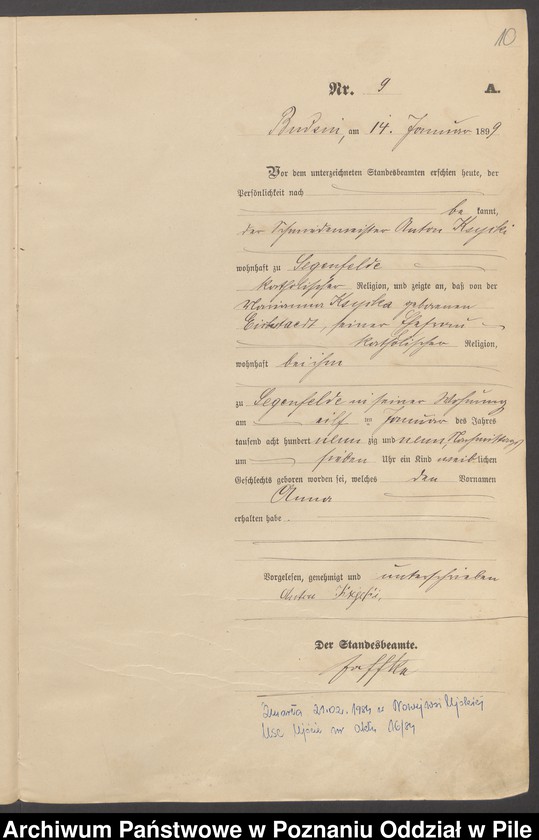 10
Nr. 9 A.
Budsin, am 14. Januar 1899
Vor dem unterzeichneten Standesbeamten erschien heute, der
Persönlichkeit nach
be kannt,
der Schmiedemeister Anton Ksycki
wohnhaft zu Segenfelde
katholischer Religion, und zeigte an, daß von der
Marianna geborenen
seiner Ehefrau
katholischer Religion,
wohnhaft bei ihm
zu Segenfelde in seiner Wohnung
am eilf ten Januar des Jahres
tausend acht hundert neun zig und neun, Nachmittags
um sieben Uhr ein Kind weib lichen
Geschlechts geboren worden sei, welches den Vornamen
Anna
erhalten habe.
Vorgelesen, genehmigt und unterschrieben
Anton
Der Standesbeamte.
Zmarła 21.02.1984 w Nowejwsi Ujskiej
Usc Ujście nr aktu 16/84
Archiwum Państwowe w Poznaniu Oddział w Pile